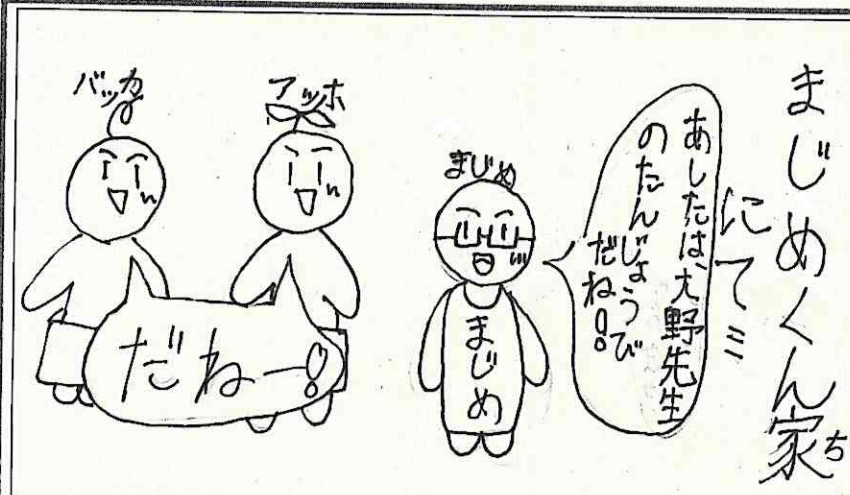 まじめくん家ち
にて…
あしたは、大野先生
のたんじょうび
だね!
まじめ
まじめ
アッホ
バッカ
だねー!